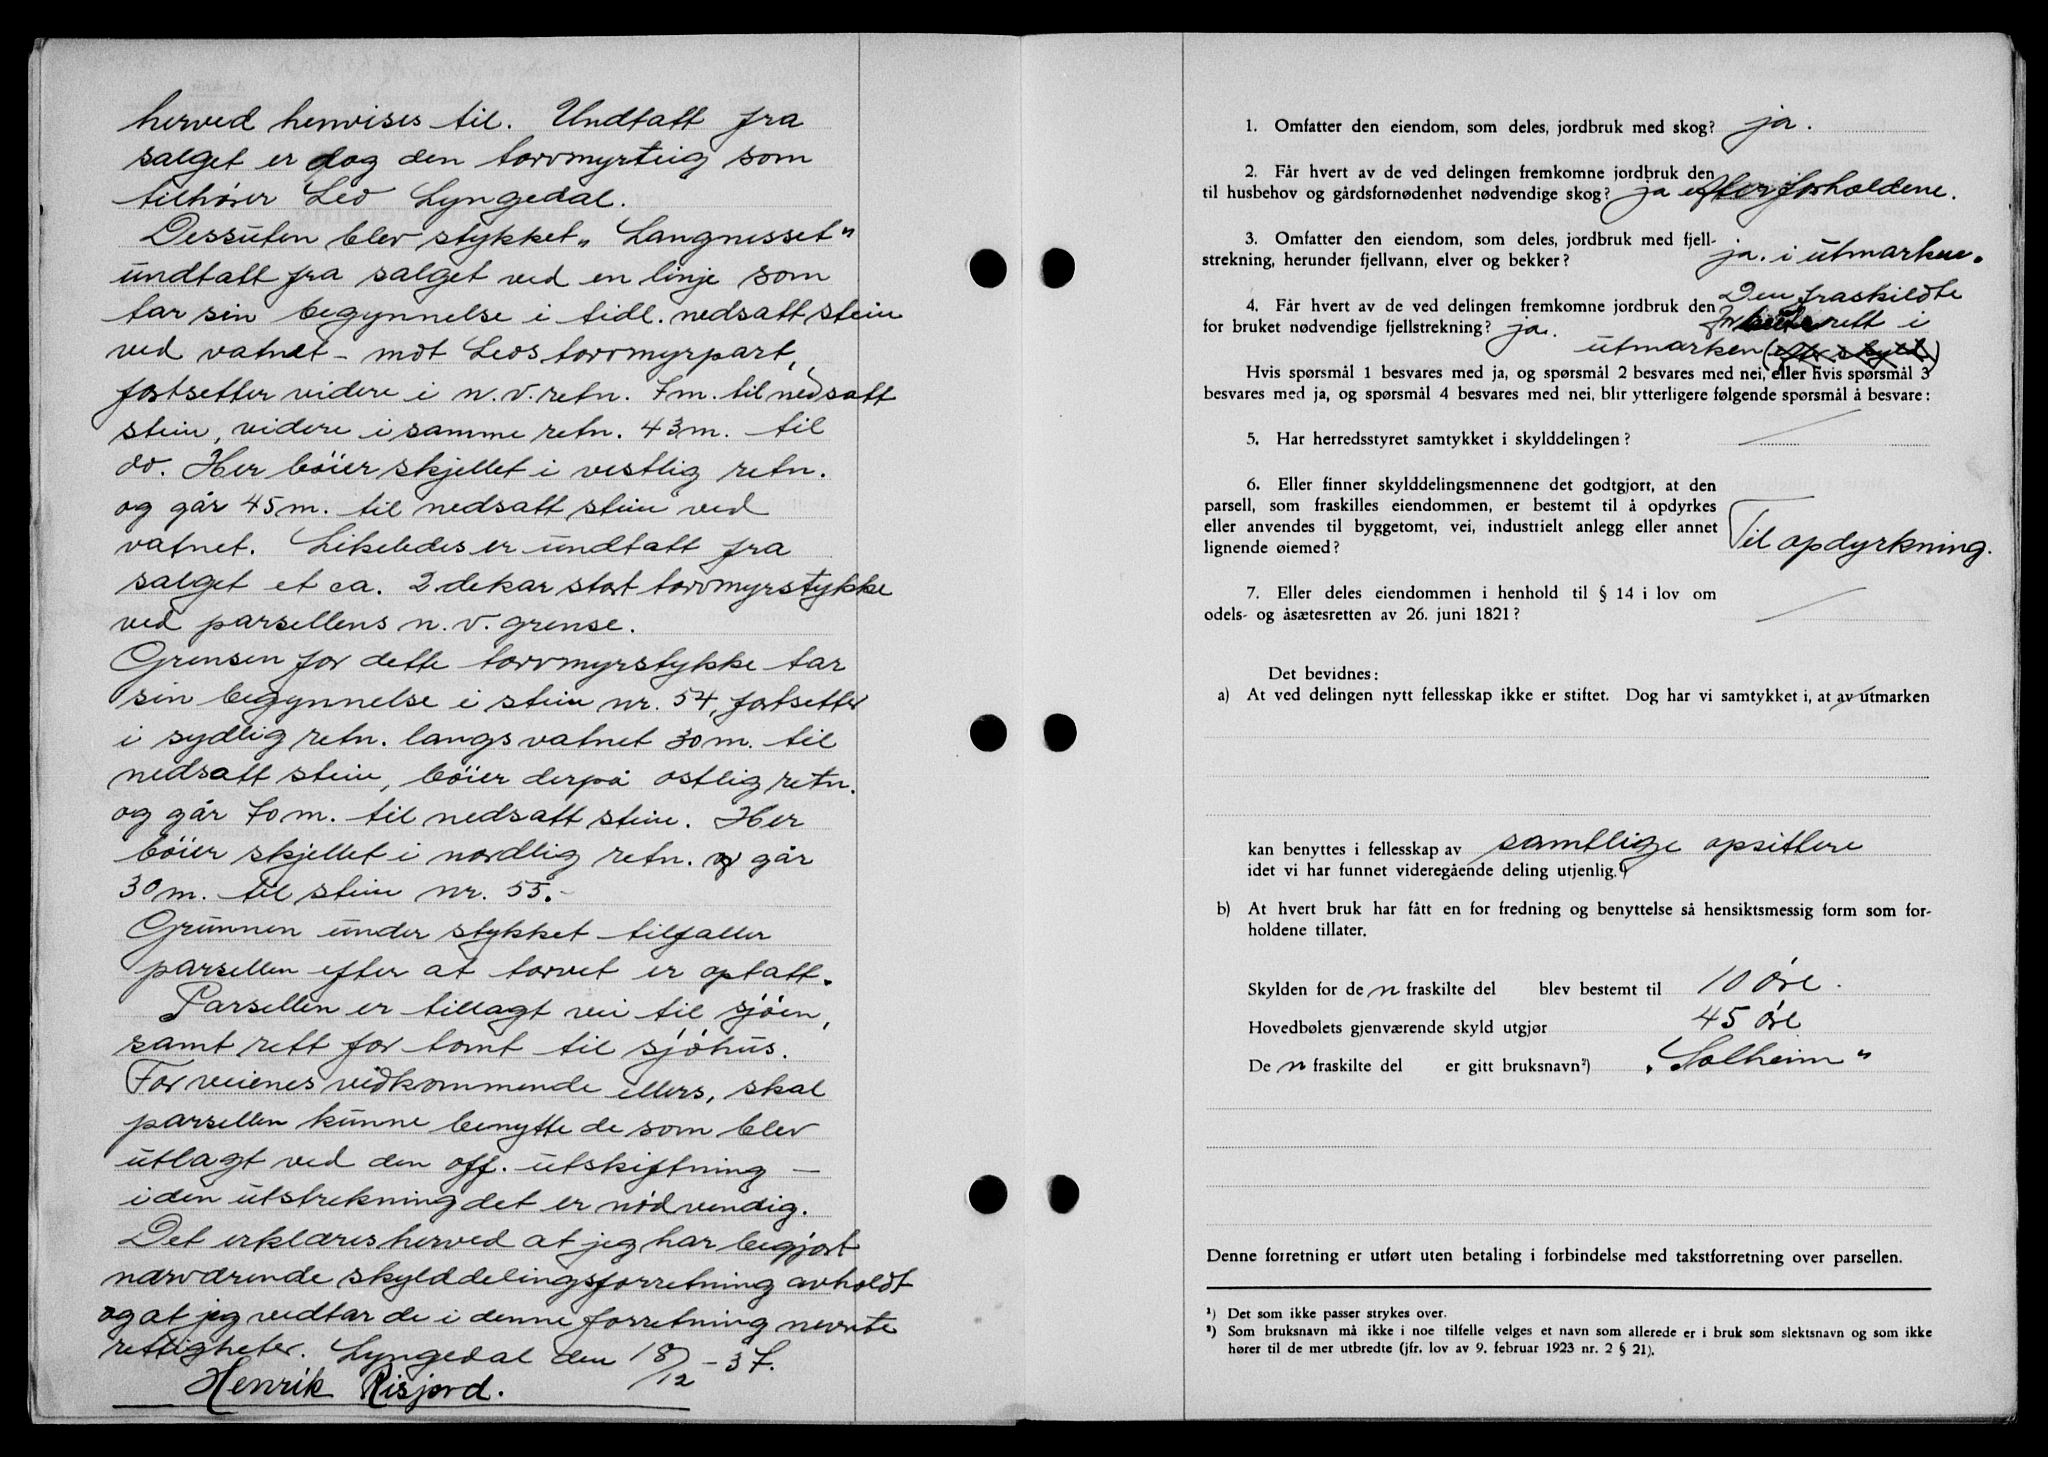 herved henvises til. Undtatt fra
salget er dog den torvmyrteig som
tilhører Leo Lyngedal.
Dessuten blev stykket „Langnesset“
undtatt fra salget ved en linje som
tar sin begynnelse i tidl. nedsatt stein
ved vatnet - mot Leos torvmyrpart,
fortsetter videre i n.v. retn. 7 m. til nedsatt
stein, videre i samme retn. 43 m. til
do. Her bøier skjellet i vestlig retn.
og går 45 m. til nedsatt stein ved
vatnet. Likeledes er undtatt fra
salget et ca. 2 dekar stort torvmyrstykke
ved parsellens n.v. grense.
Grensen for dette torvmyrstykke tar
sin begynnelse i stein nr. 54, fortsetter
i sydlig retn. langs vatnet 30 m. til
nedsatt stein, bøier derpå ostlig retn.
og går 70 m. til nedsatt stein. Her
bøier skjellet i nordlig retn. og går
30 m. til stein nr. 55.-
Grunnen under stykket tilfaller
parsellen efter at torvet er optatt.
Parsellen er tillagt vei til sjøen,
samt rett for tomt til sjøhus.
For veienes vidkommende ellers, skal
parsellen kunne benytte de som blev
utlagt ved den off. utskiftning -
i den utstrekning det er nødvendig.
Det erklæres herved at jeg har begjørt
nærværende skylddelingsforretning avholdt
og at jeg vedtar de i denne forretning nevnte
rettigheter. Lyngedal den 18/12 - 37.
Henrik Risjord.
1. Omfatter den eiendom, som deles, jordbruk med skog? ja.
2. Får hvert av de ved delingen fremkomne jordbruk den
til husbehov og gårdsfornødenhet nødvendige skog? ja efter forholdene.
3. Omfatter den eiendom, som deles, jordbruk med fjell-
strekning, herunder fjellvann, elver og bekker? ja. i utmarken.
4. Får hvert av de ved delingen fremkomne jordbruk den Den fraskildte
for bruket nødvendige fjellstrekning? ja. får beiterett i
utmarken (efter skyld)
Hvis spørsmål 1 besvares med ja, og spørsmål 2 besvares med nei, eller hvis spørsmål 3
besvares med ja, og spørsmål 4 besvares med nei, blir ytterligere følgende spørsmål å besvare:
5. Har herredsstyret samtykket i skylddelingen?
6. Eller finner skylddelingsmennene det godtgjort, at den
parsell, som fraskilles eiendommen, er bestemt til å opdyrkes
eller anvendes til byggetomt, vei, industrielt anlegg eller annet
lignende øiemed? Til opdyrkning.
7. Eller deles eiendommen i henhold til § 14 i lov om
odels- og åsætesretten av 26. juni 1821?
Det bevidnes:
a) At ved delingen nytt fellesskap ikke er stiftet. Dog har vi samtykket i, at av utmarken
kan benyttes i fellesskap av samtlige opsittere
idet vi har funnet videregående deling utjenlig.¹)
b) At hvert bruk har fått en for fredning og benyttelse så hensiktsmessig form som for-
holdene tillater.
Skylden for de n fraskilte del blev bestemt til 10 øre.
Hovedbølets gjenværende skyld utgjør 45 øre
De n fraskilte del er gitt bruksnavn²) „Solheim“
Denne forretning er utført uten betaling i forbindelse med takstforretning over parsellen.
¹) Det som ikke passer strykes over.
²) Som bruksnavn må ikke i noe tilfelle velges et navn som allerede er i bruk som slektsnavn og som ikke
hører til de mer utbredte (jfr. lov av 9. februar 1923 nr. 2 § 21).